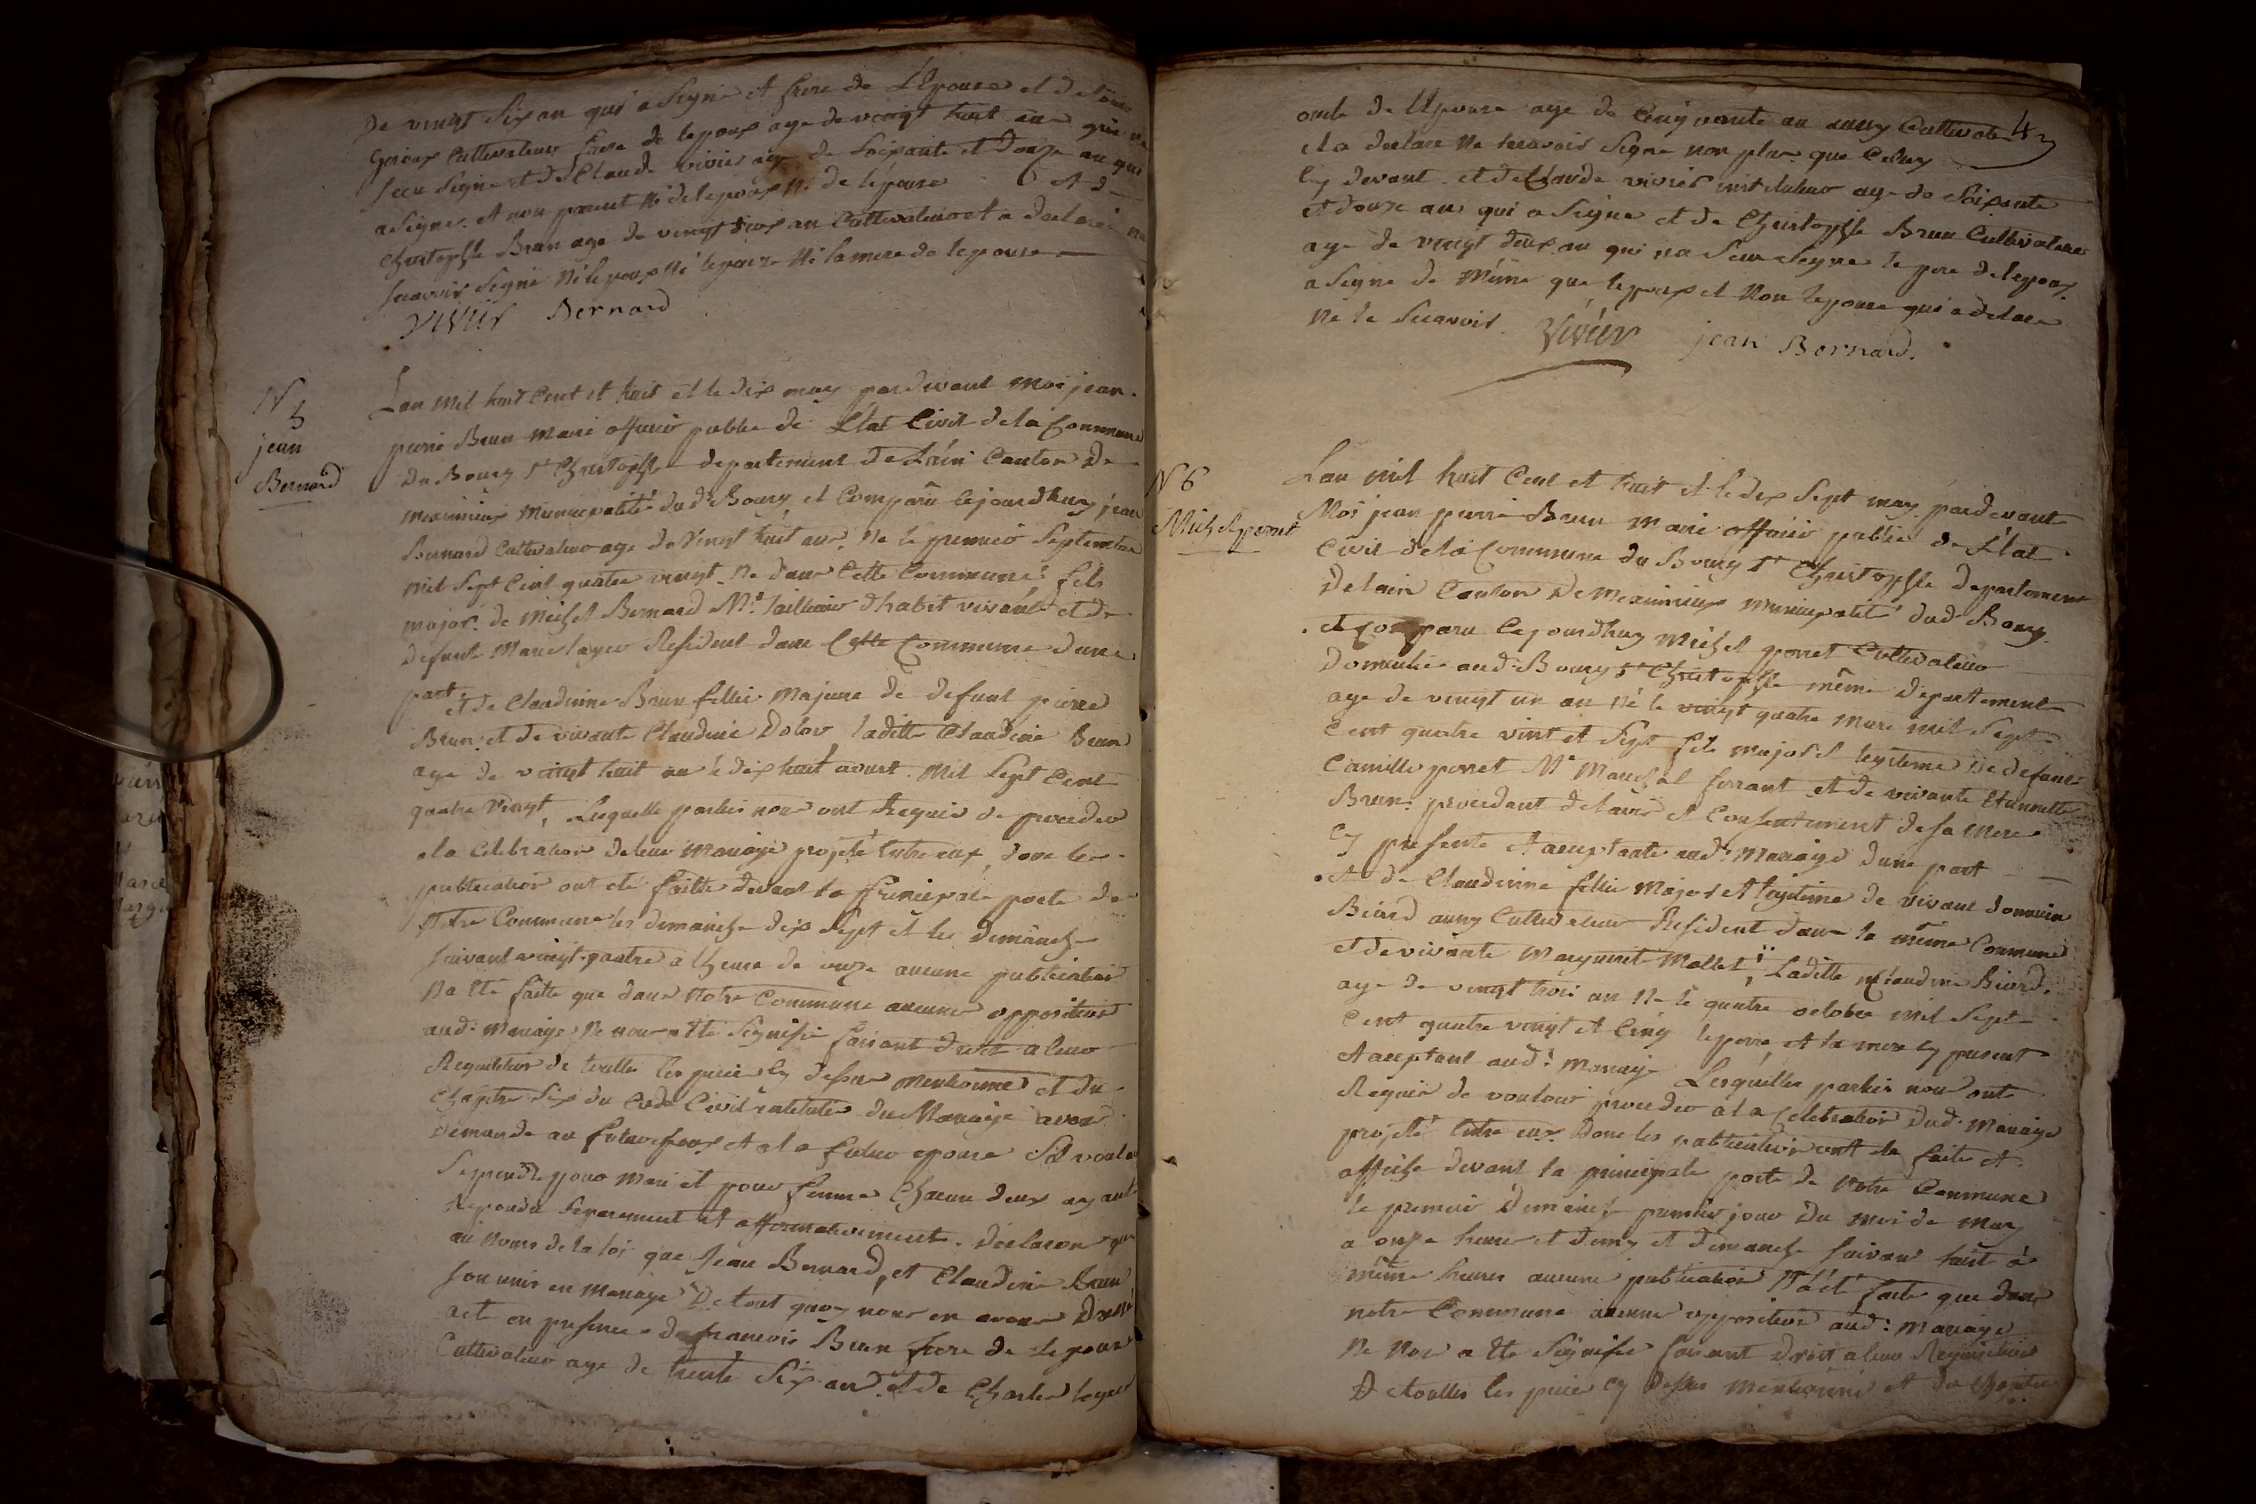 De vingt Six an qui a Signé et frere de L'Epouse et de
Cultivateur frere de lepoux age de vingt huit ans qui
Sceu Signé et de Claude vivier age de Soixante et Douze an qui
a Signé et non present Ni de lepoux Ni de lepouse et de
Christophle Brun age de vingt deux an Cultivateur et a declaré ne
Scavoir Signé Ni lepoux Ni lepouse Ni la mere de lepouse
Vivier Bernard
N 5
jean
Bernard
Lan mil huit Cent et huit et le dix may pardevant Moi jean
pierre Brun Maire officier public de L'Etat Civil de la Commune
Du Bourg St Christophle departement de L'ain Canton De
meximieux Municipalité dud Bourg et Comparu cejourdhuy jean
Bernard Cultivateur age de Vingt huit ans Né le premier Septembre
mil Sept Cent quatre vingt Ne dans Cette Commune fils
major de Michel Bernard Me tailleur dhabit vivant et de
Defunte Marie layer Resident dans Cette Commune dune
part et de Claudinne Brun fillie Majeure de defunt pierre
Brun et de vivante Claudine Dolor laditte Claudine Brun
age de vingt huit an le dix huit aoust Mil Sept Cent
quatre Vingt, Lesquelle parties nou ont Requis de proceder
a la Celebration de leur Mariage projetté entre eux, dont les
publication ont eté faitte devant la principale porte de
Notre Commune les dimanche dix Sept et les dimanche
Suivant vingt quatre a lheure de onze aucune publication
Na eté faitte que dans Notre Commune aucune opposition
aud: Mariage Ne nous a eté Signifié faisant droit a leur
Requisition de touttes les piece cy dessus mentionné et du
Chapitre Six du Code Civil intitulé du Mariage avon
Demande au futur epoux et a la future epouse Sil veule
Se prendre pour Mari et pour femme Chacun deux ayant
Repondu Separement et affirmativement. Declaron que
au Noms de la loi que Jean Bernard, et Claudine Brun
Son unis en Mariage De tout quoy nous en avons Dressé
act en presence de francois Brun frere de lepouse
Cultivateur age de trente Six an et de Charles layer
oncle de lEpouse age de Cinquante an aussy Cultivateur
et a declaré Ne Scavoir Signé non plus que Celuy
Cy devant et de Claude vivier instituteur age de Soixante
et douze ans qui a Signé et de Christophle Brun Cultivateur
age de vingt deux an qui na Sceu Signé le pere de lepoux
a Signé de Même que lepoux et Non lepouse qui a declaré
Ne le Scavoir
Vivier jean Bernard.
N 6
Michel ponet
Lan mil huit Cent et huit et le dix Sept may pardevant
Moi jean pierre Brun Maire officier public de L'Etat
Civil de la Commune du Bourg St Christophle departement
De lain Canton De Meximieux Municipalité dud Bourg
et Comparu Cejourdhuy Michel ponet Cultivateur
Domicilié aud: Bourg St Christophle même Departement
age de vingt un an Né le vingt quatre Mars mil Sept
Cent quatre vint et Sept fils major et legitime De defunt
Camille ponet Me Marechal ferrant et de vivante
Brun: procedant de lavis et Consentement de sa Mere
Cy presente et aceptante aud: Mariage dune part
et de Claudinne fillie Major et legitime de vivant
Biard aussy Cultivateur Resident dans la même Commune
et de vivante Marguerite Mallet; Laditte Claudine Biard
age de vingt trois an Né le quatre octobre mil Sept
Cent quatre vingt et Cinq le pere et la mere cy present
et aceptant aud: Mariage Lesquelles parties nou ont
Requis de vouloir proceder a la Celebration Dud: Mariage
projetté entre eux Dont les publication ont eté faite et
affiché devant la principale porte de Notre Commune
le premier Dimanche premier jour Du moi de May
a onze heure et demy et dimanche Suivant huit à
même heures aucune publication Na été faite que dans
notre Commune aucune opposition aud: Mariage
Ne Nou a eté Signifié faisant Droit a leur Requisition
De touttes les piece cy Dessus Mentionné et du Chapitre